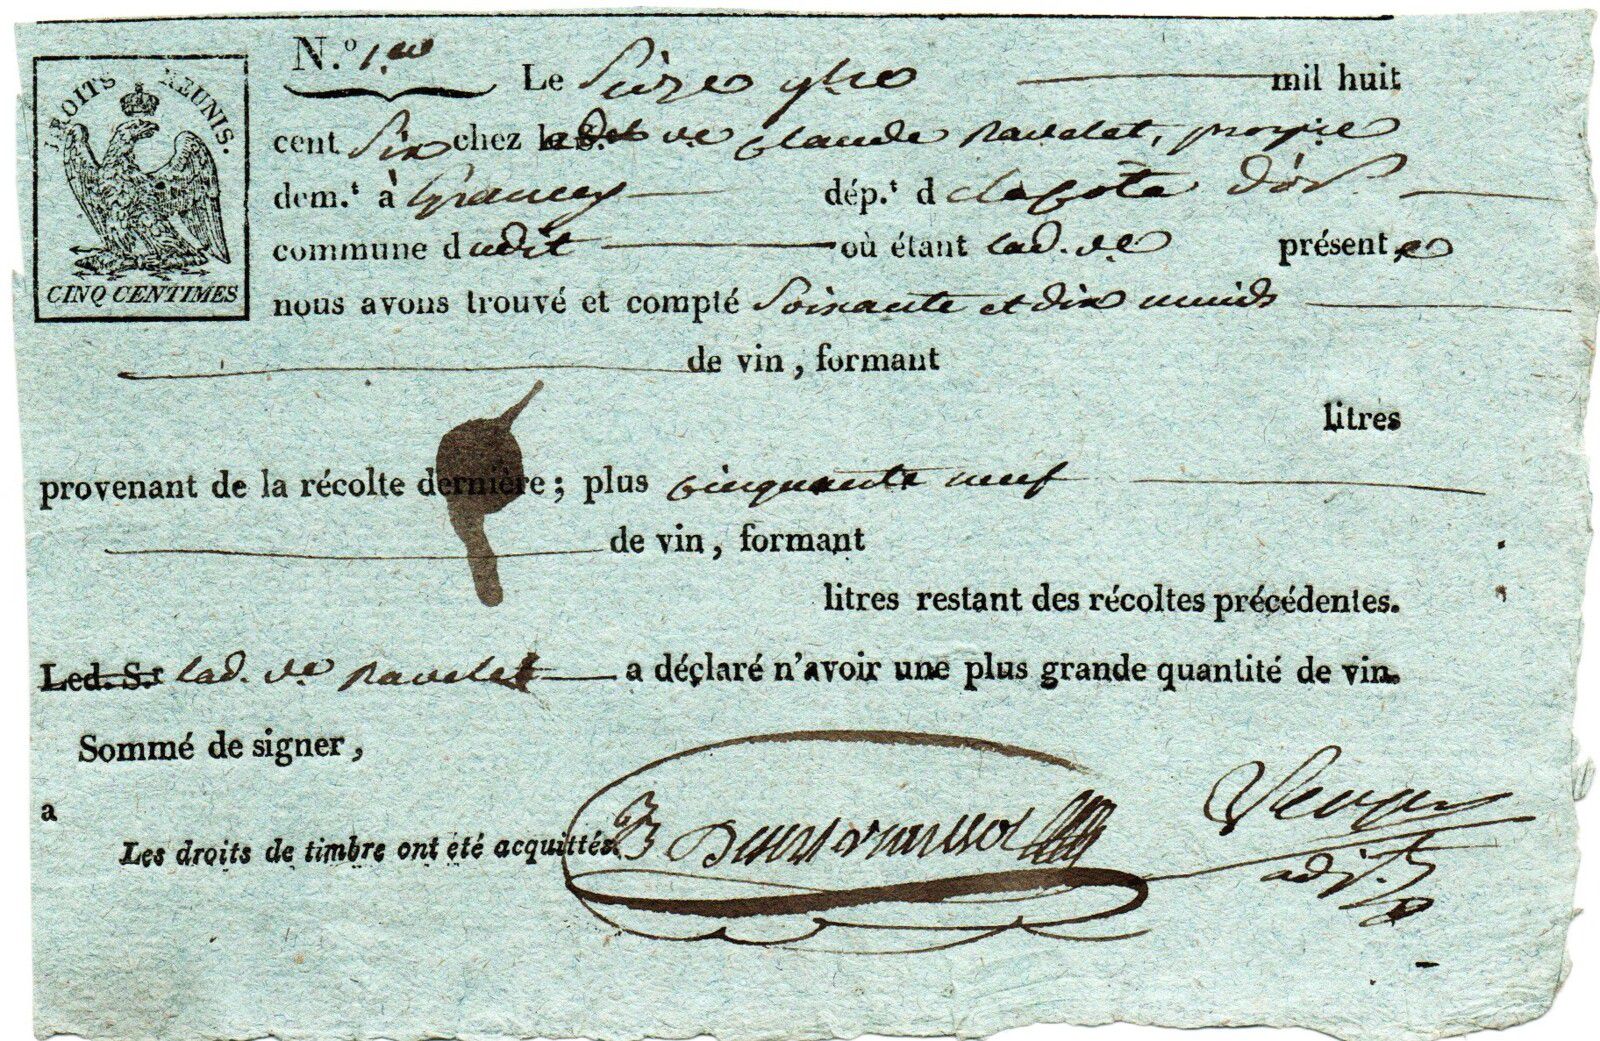 DROITS REUNIS.
CINQ CENTIMES
N.º 1.er
Le Seize 9bre mil huit
cent Six chez lad. ve Claude Ravelet, propre
dem.t à Grancey dép.t d elaCôte d'or.
commune dudit où étant lad. ve présente
nous avons trouvé et compté Soixante et dix muids
de vin, formant
litres
provenant de la récolte dernière; plus cinquante neuf
de vin, formant
litres restant des récoltes précédentes.
Led. S.r lad. ve Ravelet a déclaré n'avoir une plus grande quantité de vin.
Sommé de signer,
a
Les droits de timbre ont été acquittés.
adjt.